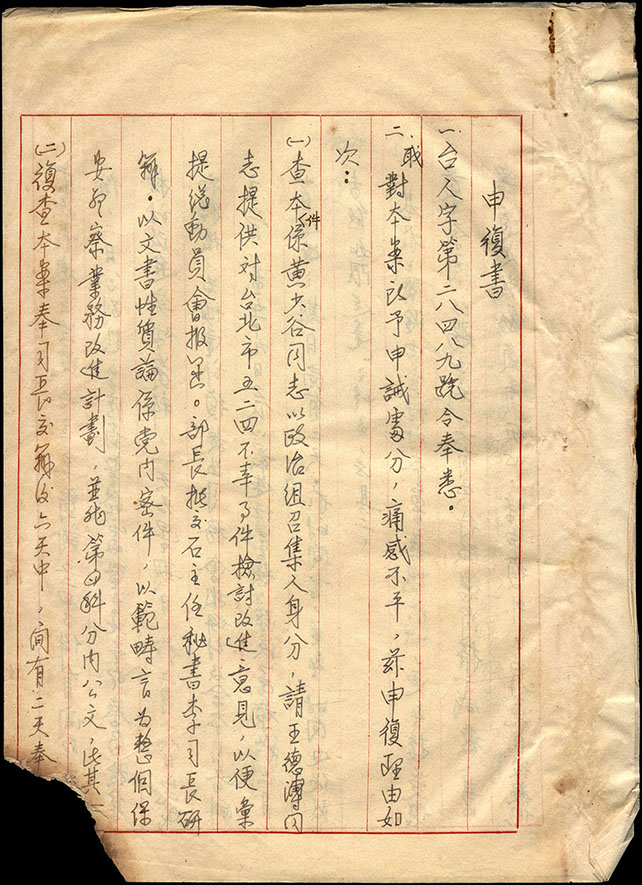 申復書
一、台人字第二八四八九號令奉悉。
二、職對本案所予申誡處分，痛感不平，茲申復理由如
次：
㈠查本件係黃少谷同志以政治組召集人身分，請王德溥同
志提供對台北市五二四不幸事件檢討改進意見，以便彙
提總動員會報告。部長批交石主任秘書李司長研
辦。以文書性質論係党內密件，以範疇言為整個保
安警察業務改進計劃，並非第四科分內公文，此其一
㈡復查本案奉司長交辦後六天中，間有二天奉